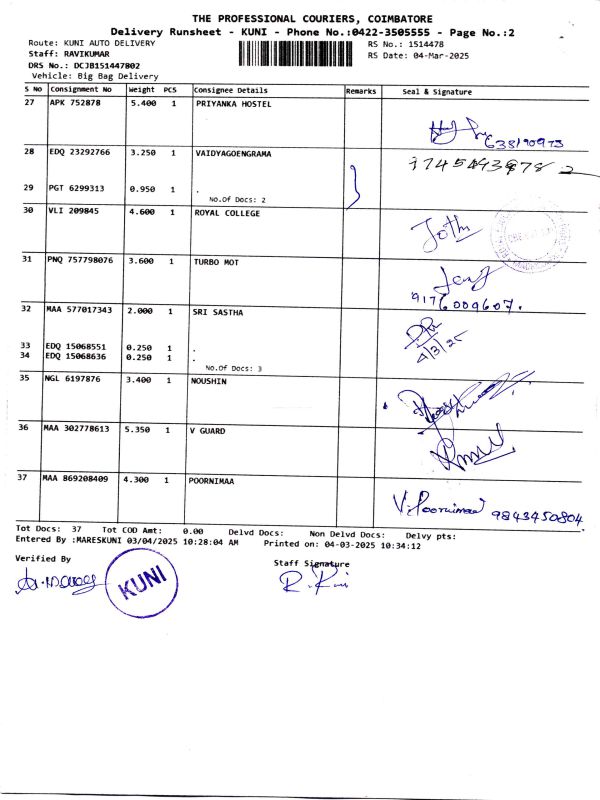 THE PROFESSIONAL COURIERS, COIMBATORE
Delivery Runsheet - KUNI - Phone No.:0422-3505555 - Page No.:2
Route: KUNI AUTO DELIVERY RS No.: 1514478
Staff: RAVIKUMAR RS Date: 04-Mar-2025
DRS No.: DCJB151447802
Vehicle: Big Bag Delivery
S No Consignment No Weight PCS Consignee Details Remarks Seal & Signature
27 APK 752878 5.400 1 PRIYANKA HOSTEL
28 EDQ 23292766 3.250 1 VAIDYAGOENGRAMA
29 PGT 6299313 0.950 1 .
No.Of Docs: 2
30 VLI 209845 4.600 1 ROYAL COLLEGE
Jothi
31 PNQ 757798076 3.600 1 TURBO MOT
9176009607.
32 MAA 577017343 2.000 1 SRI SASTHA
4/3/25
33 EDQ 15068551 0.250 1 .
34 EDQ 15068636 0.250 1 .
No.Of Docs: 3
35 NGL 6197876 3.400 1 NOUSHIN
36 MAA 302778613 5.350 1 V GUARD
37 MAA 869208409 4.300 1 POORNIMAA
V. Poornimaa 9843450804.
Tot Docs: 37 Tot COD Amt: 0.00 Delvd Docs: Non Delvd Docs: Delvy pts:
Entered By :MARESKUNI 03/04/2025 10:28:04 AM Printed on: 04-03-2025 10:34:12
Verified By Staff Signature
KUNI